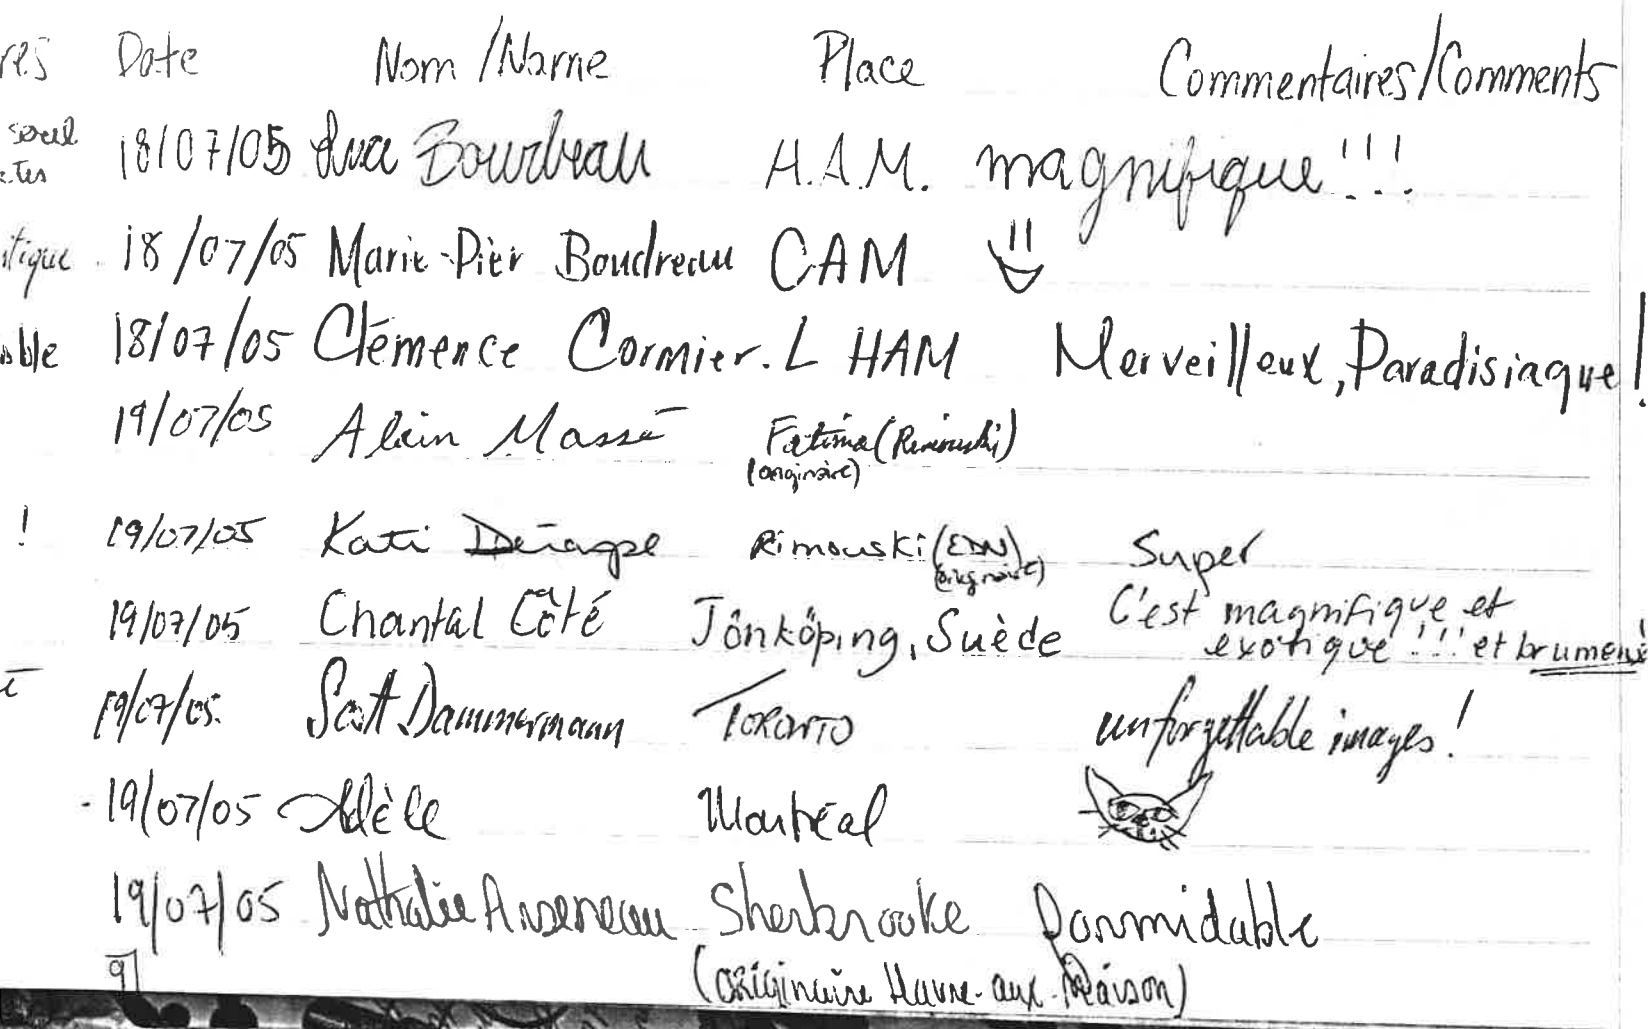 Date Nom/Name Place Commentaires/Comments
18/07/05 Boudreau H.A.M. magnifique!!!
18/07/05 Marie-Pier Boudreau CAM
18/07/05 Clémence Cormier.L HAM Merveilleux, Paradisiaque!
19/07/05 Alain Massé Fatima (Rimouski)
(originaire)
! 19/07/05 Kati Rimouski (EDN) Super
(originaire)
19/07/05 Chantal Côté Jönköping, Suède C'est magnifique et
exotique!!! et brumeux!
19/07/05 Scott Dammermann TORONTO unforgettable images!
19/07/05 Adèle Montréal
19/07/05 Nathalie Arseneau Sherbrooke Formidable
(originaire Havre-aux-Maison)
9